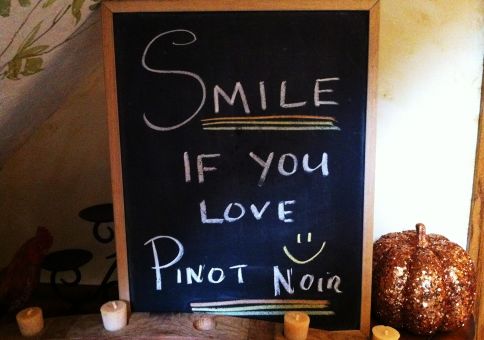 SMILE
IF YOU
LOVE
PINOT NOIR